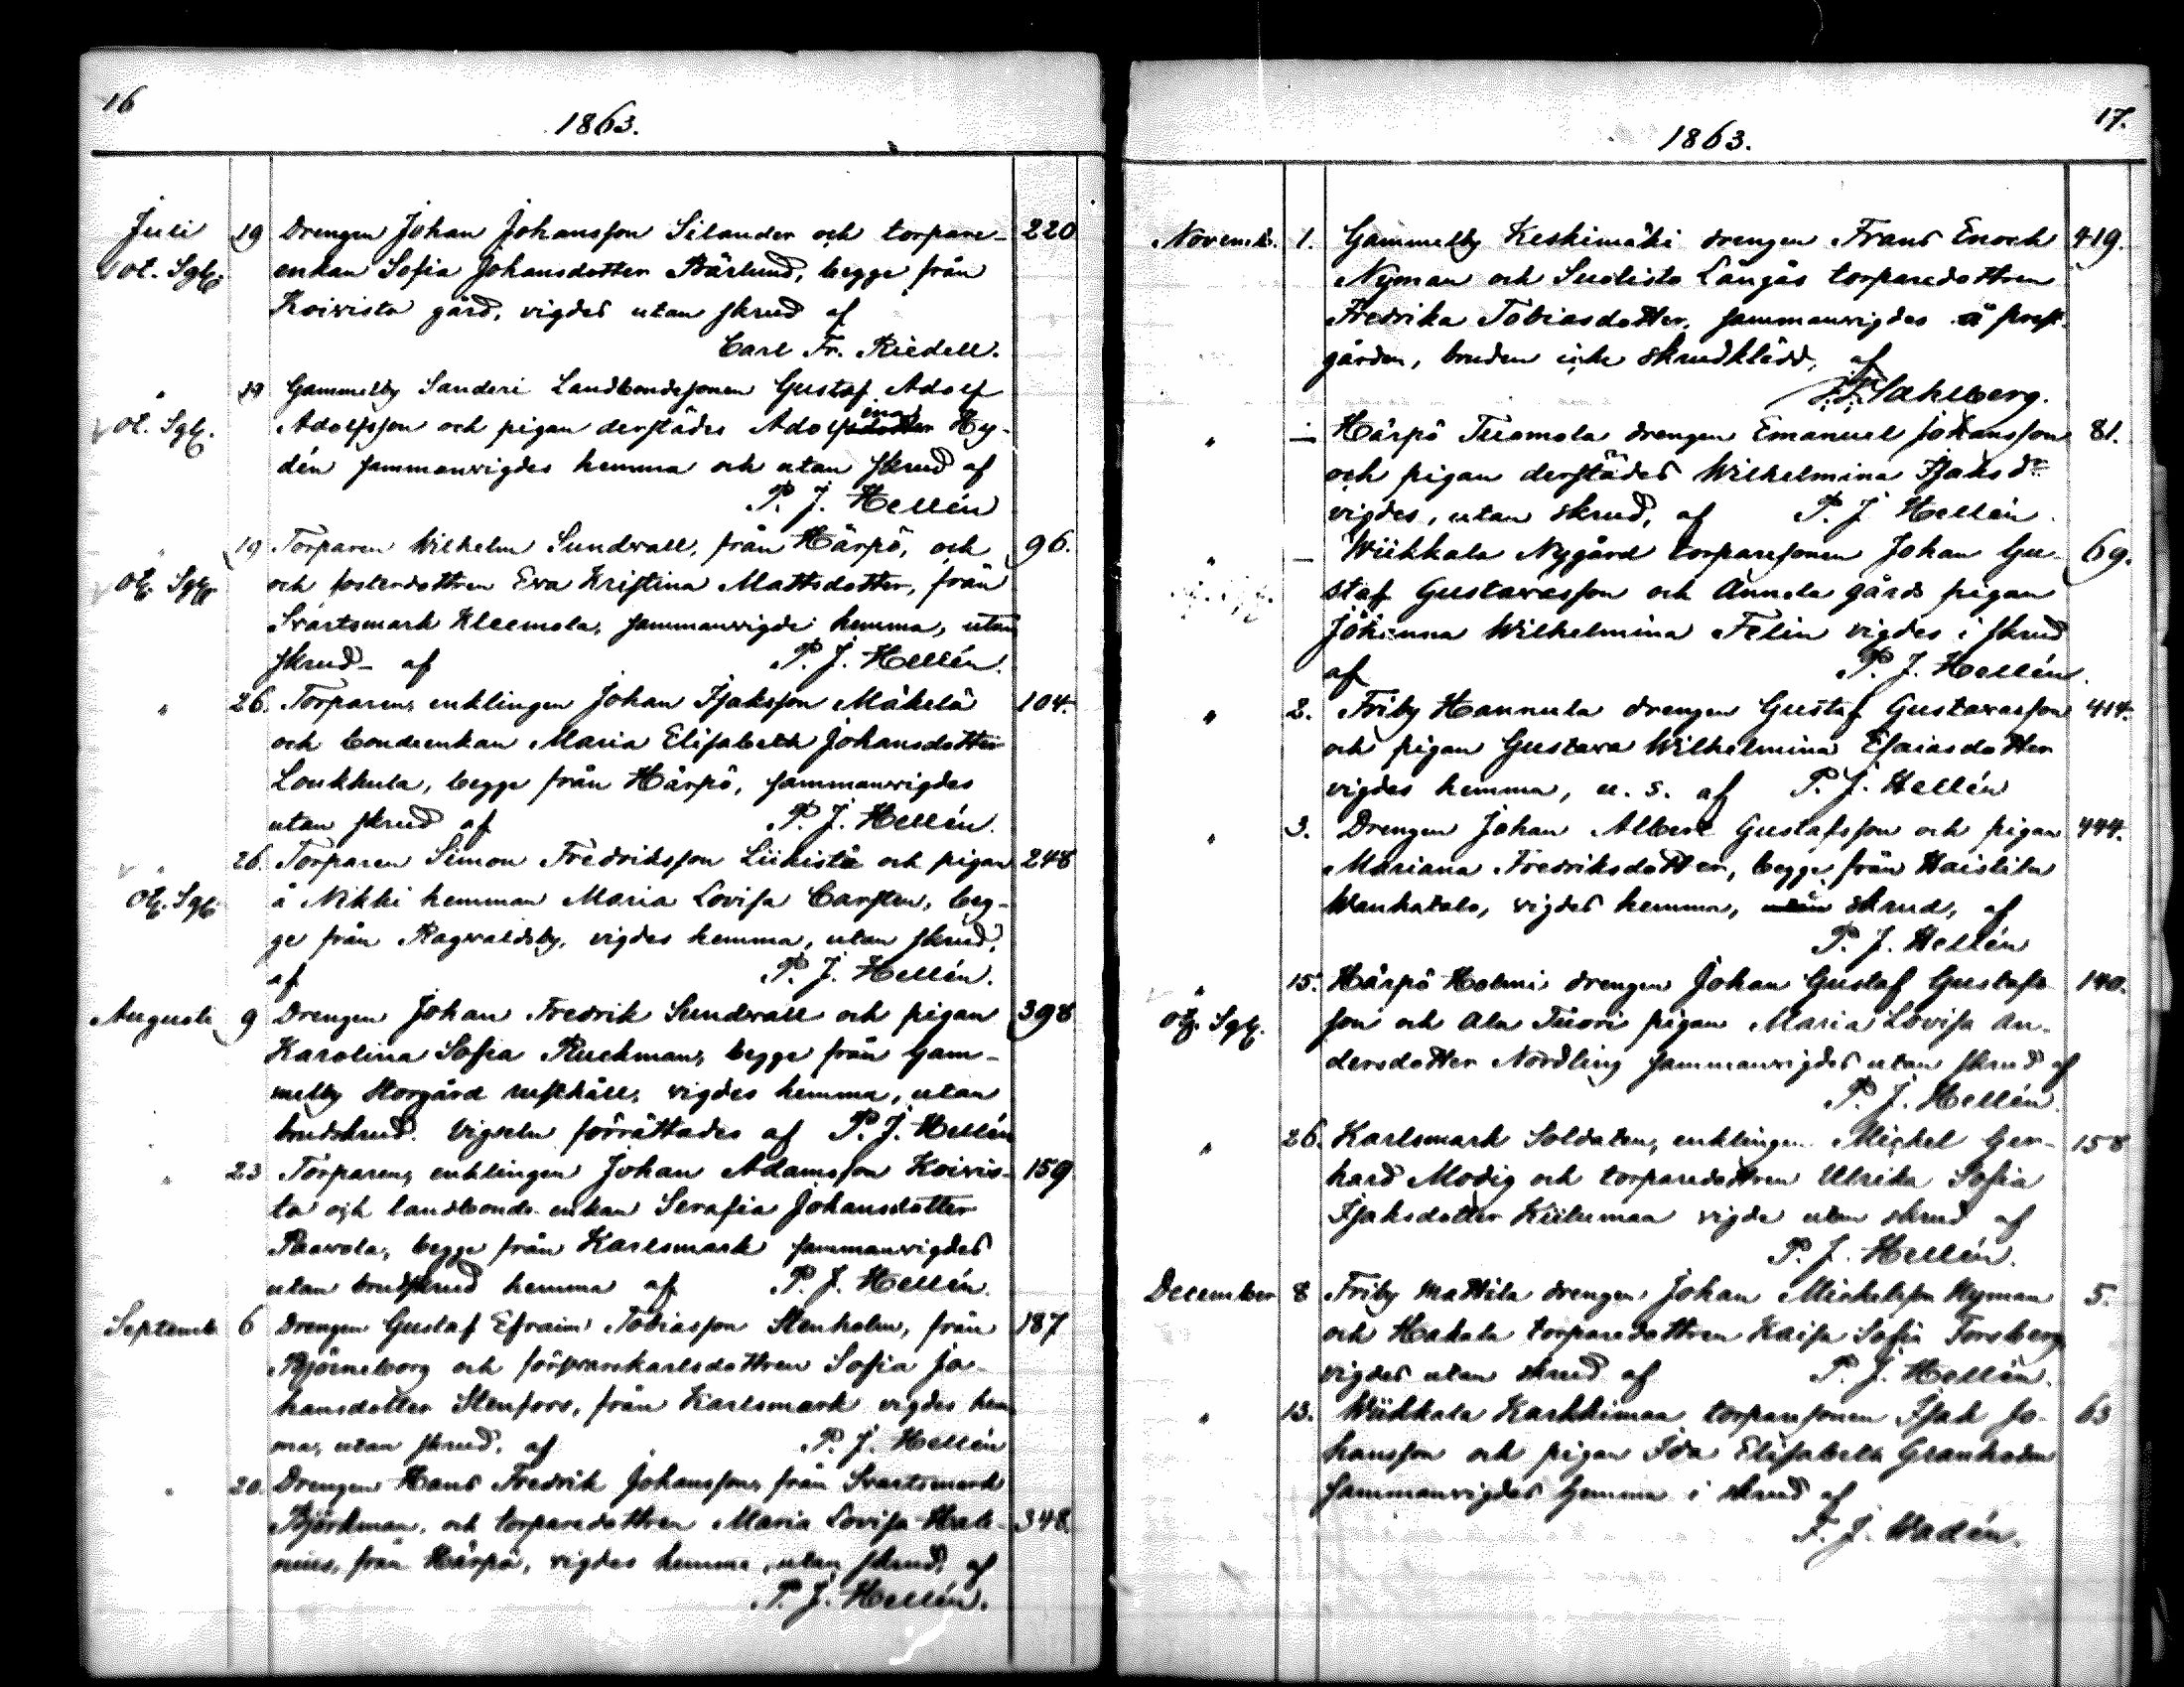 16
1863.
Juli 19 Drengen Johan Johansson Silander och torpare- 220
ot. Sgl. enkan Sofia Johansdotter Bärlund, begge från
Koivisto gård, vigdes utan skrud af
Carl Fr. Riedell.
" 19 Gammelby Sanderi Landbondesonen Gustaf Adolf
ot. Sgl. Adolfsson och pigan derstädes Adolfina Hy-
dén sammanvigdes hemma och utan skrud af
P. J. Hellén
" 19 Torparen Wilhelm Sundvall, från Härpö, och 96.
ot. Sgl. och fosterdottren Eva Kristina Mattsdotter, från
Svartsmark Kleemola, sammanvigde hemma, utan
skrud- af P. J. Hellén.
" 26. Torparen, enklingen Johan Isaksson Mäkelä 104.
och bondeenkan Maria Elisabeth Johansdotter
Loukkula, begge från Härpö, sammanvigdes
utan skrud af P. J. Hellén.
" 26. Torparen Simon Fredriksson Liikistö och pigan 248
ot. Sgl. å Nikki hemman Maria Lovisa Carsten, beg-
ge från Ragvaldsby, vigdes hemma, utan skrud,
af P. J. Hellén.
Augusti 9 Drengen Johan Fredrik Sundvall och pigan 398
Karolina Sofia Ruckman, begge från Gam-
melby Storgård rusthåll, vigdes hemma, utan
brudskrud. Vigseln förrättades af P. J. Hellén
" 23 Torparen, enklingen Johan Adamsson Koivis- 159
to och landbonde enkan Serafia Johansdotter
Paavola, begge från Karlsmark sammanvigdes
utan brudskrud hemma af P. J. Hellén.
Septemb. 6 Drengen Gustaf Efraim Tobiasson Stenholm, från 187
Björneborg och försvarskarlsdottren Sofia Jo-
hansdotter Stenfors, från Karlsmark vigdes hem-
ma, utan skrud, af P. J. Hellén
" 20. Drengen Hans Fredrik Johansson, från Svartsmark
Björkman, och torparedottren Maria Lovisa Hale- 348.
nius, från Härpö, vigdes hemma, utan skrud, af
P. J. Hellén.
17.
1863.
Novemb. 1. Gammelby Keskimäki drengen Frans Enoch 419.
Nyman och Suolisto Långås torparedottren
Fredrika Tobiasdotter, sammanvigdes å prest-
gården, bruden icke skrudklädd, af
Sahlberg.
" — Härpö Tuomola drengen Emanuel Johansson 81.
och pigan derstädes Wilhelmina Isaksdr
vigdes, utan skrud, af P. J. Hellén.
" — Wiikkala Nygård torparesonen Johan Gu- 69.
staf Gustavasson och Annala gårds pigan
Johanna Wilhelmina Felin vigdes i skrud
af P. J. Hellén.
" 2. Friby Hannula drengen Gustaf Gustavasson 414.
och pigan Gustava Wilhelmina Esaiasdotter
vigdes hemma, u. s. af P. J. Hellén
" 3. Drengen Johan Albert Gustafsson och pigan 444.
Mariana Fredriksdotter, begge från Haistila
Wanhatalo, vigdes hemma, utan skrud, af
P. J. Hellén
" 15. Härpö Holmi drengen Johan Gustaf Gustafs- 140.
ot. Sgl. son och Ala Tuori pigan Maria Lovisa An-
dersdotter Nordling sammanvigdes utan skrud af
P. J. Hellén.
" 26. Karlsmark Soldaten, enklingen Michel Ger- 158
hard Modig och torparedottren Ulrika Sofia
Isaksdotter Kiilumaa vigde utan skrud af
P. J. Hellén.
December 8 Friby Mattila drengen Johan Michelsson Nyman 5.
och Hakala torparedottren Kaisa Sofia Forsberg
vigdes utan skrud af P. J. Hellén.
" 13. Wiikkala Karhkimaa torparesonen Isak Jo- 63
hansson och pigan Ida Elisabeth Granholm
sammanvigdes hemma i skrud af
F. J. Wadén.